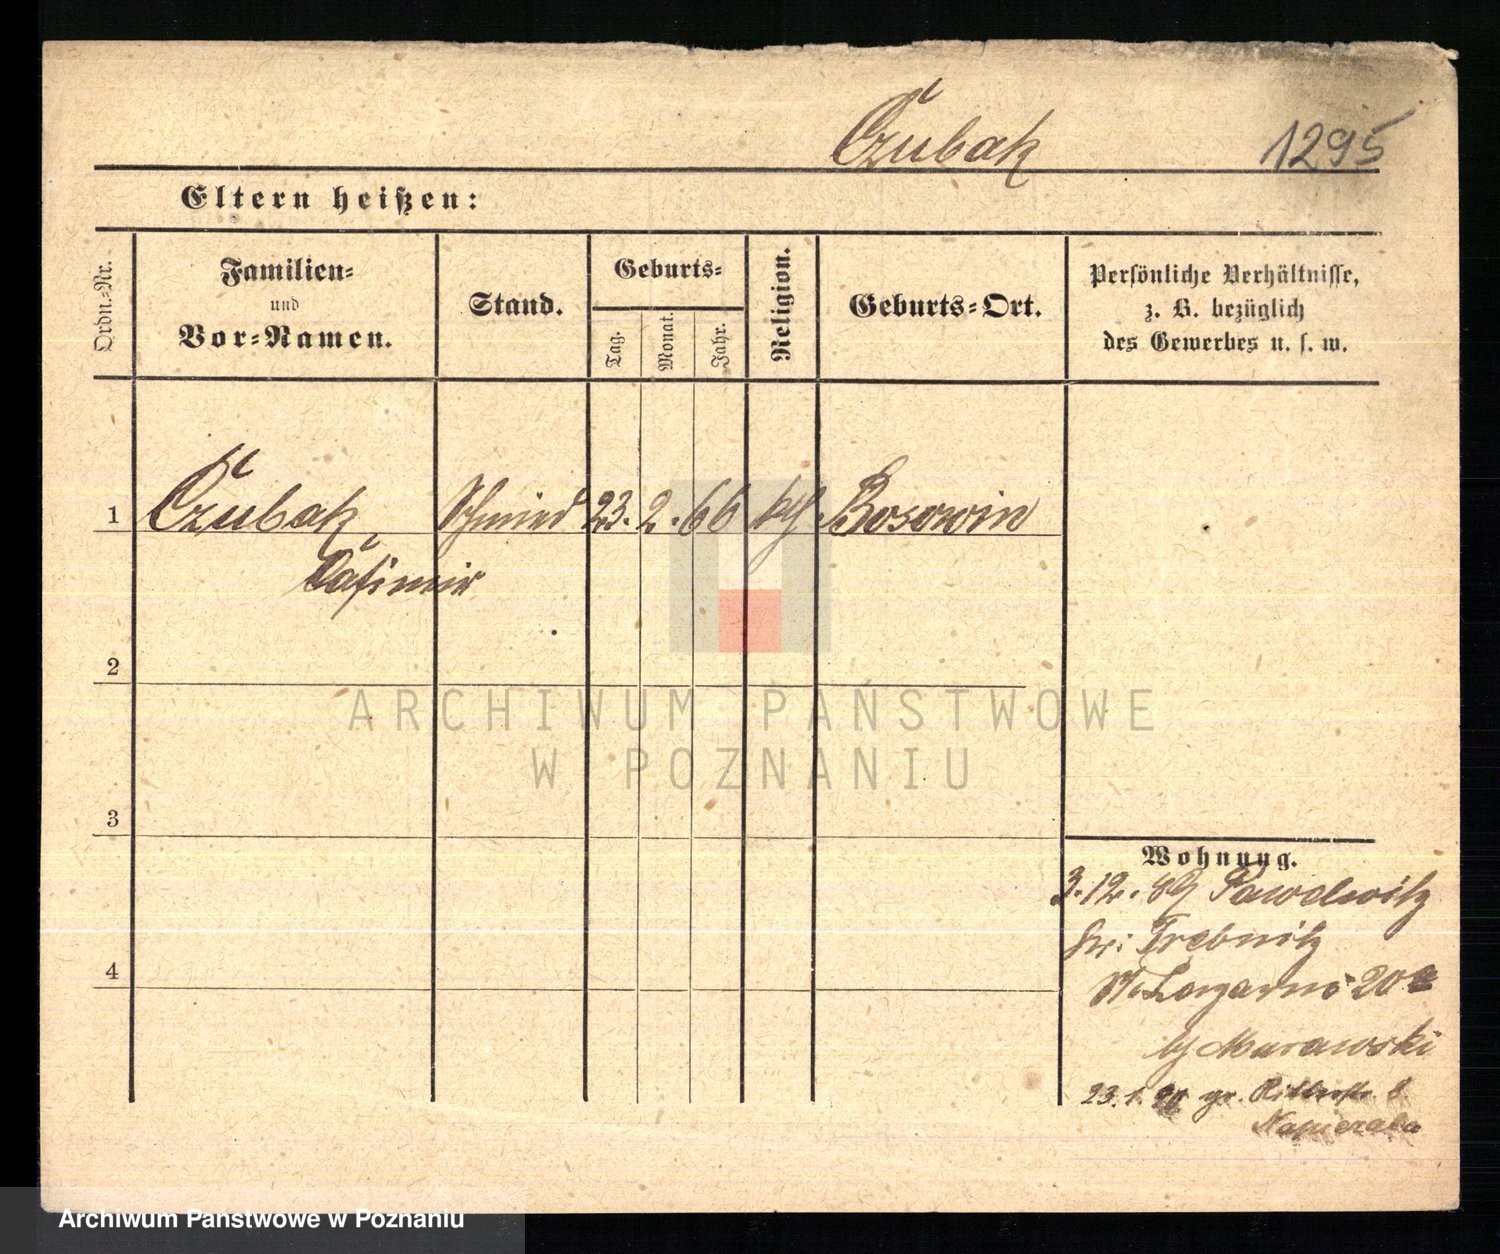 Czubak 1295
Eltern heißen:
Ordn.-Nr.
Familien-
und
Vor-Namen.
Stand.
Geburts-
Tag.
Monat.
Jahr.
Religion.
Geburts-Ort.
Persönliche Verhältnisse,
z. B. bezüglich
des Gewerbes u. s. w.
1 Czubak, Schmied 23. 2. 66 kth. Bosowin
Casimir
2
3
4
Wohnung.
3. 12. 89 Pawelwitz
Kr: Trebnitz
St. Lazarus 20
b/ Murawski
23. 1. gr. Ritterstr. 8
Napierala
ARCHIWUM PAŃSTWOWE
W POZNANIU
Archiwum Państwowe w Poznaniu